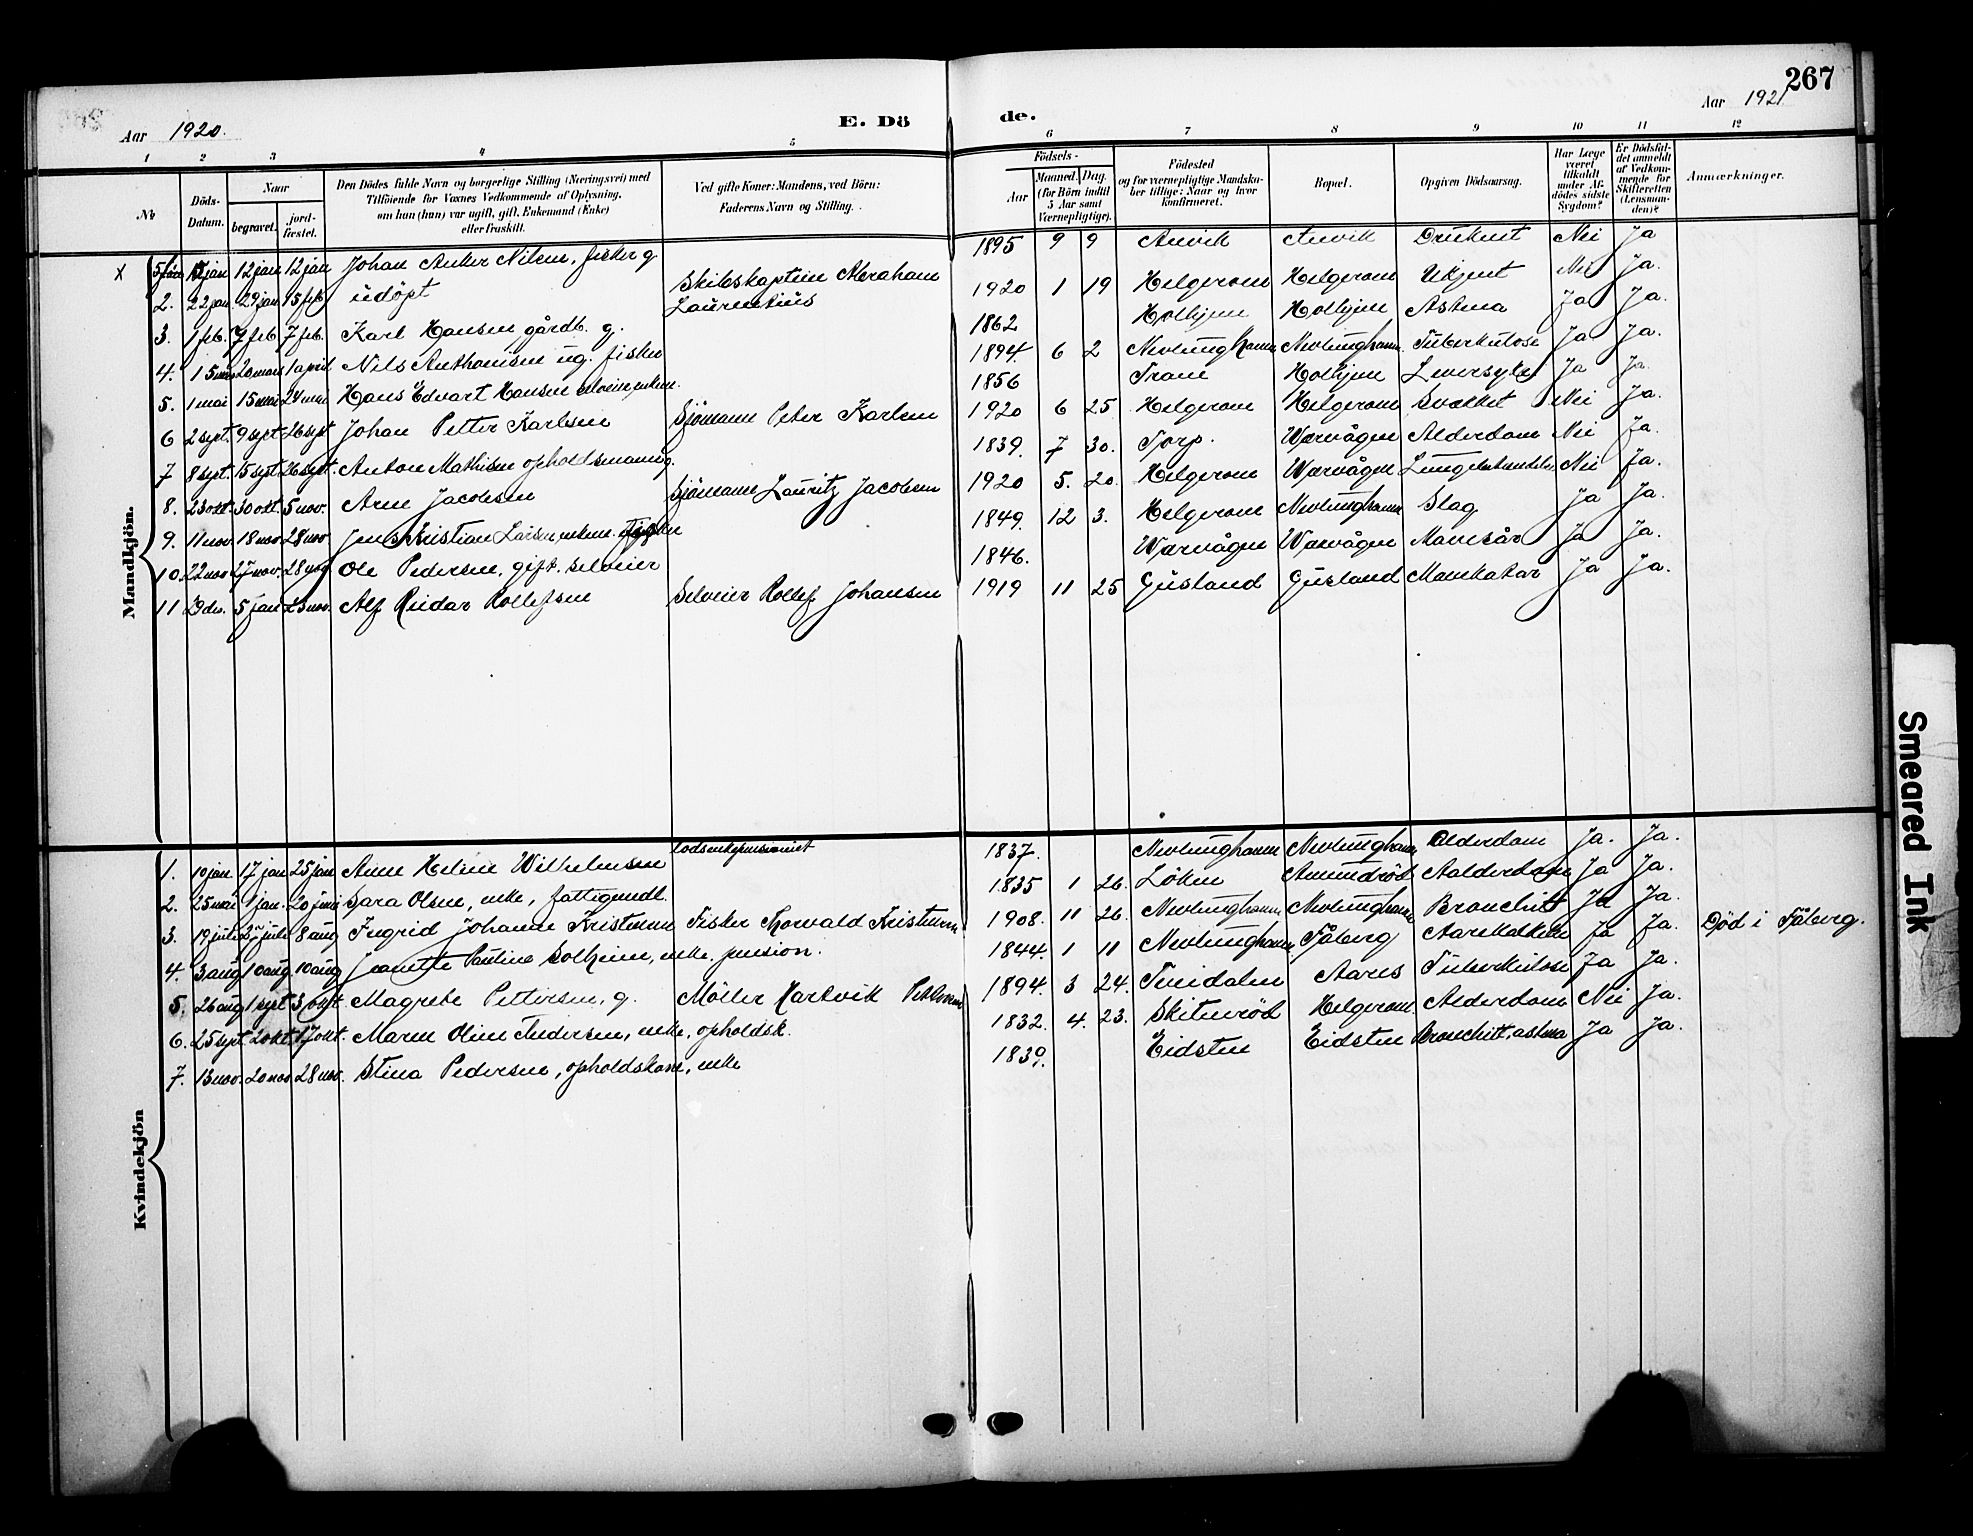 267
Aar 1920.
E. Dö
de.
Aar 1921
1 2 3 4 5 6 7 8 9 10 11 12
No
Döds-Datum.
Naar
begravet.
jord-fæstet.
Den Dödes fulde Navn og borgerlige Stilling (Næringsvei) med
Tilföiende for Voxnes Vedkommende af Oplysning,
om han (hun) var ugift, gift, Enkemand (Enke)
eller fraskilt.
Ved gifte Koner: Mandens, ved Börn:
Faderens Navn og Stilling.
Födsels-
Aar
Maaned. Dag.
(for Börn indtil
5 Aar samt
Værnepligtige).
Födested
og for værnepligtige Mandska-
ber tillige: Naar og hvor
konfirmeret.
Bopæl.
Opgiven Dödsaarsag.
Har Læge
været
tilkaldt
under Af-
dödes sidste
Sygdom?
Er Dödsfal-
det anmeldt
af Vedkom-
mende for
Skifteretten
(Lensman-
den)?
Anmærkninger.
Mandkjön.
x 12 jan 12 jan Johan Anker Nilsen, fisker g. 1895 9 9 Anvik Anvik Druknet Nei Ja
2. 22 jan. 29 jan 15 feb udöpt Skibskaptein Abraham Laurentius 1920 1 19 Helgeroen Helgeroen Ukjent Nei Ja.
3. 1 feb. 7 feb 7 feb. Karl Hansen gårdb. g. 1862 Holtjen Holtjen Astma Ja Ja.
4. 15 mars 20 mars 1 april Nils Anthonisen ug. fisker 1894. 6 2 Nevlunghavn Nevlunghavn Tuberkulose Ja Ja.
5. 1 mai 15 mai 24 mai Hans Edvart Hansen selveier, enkem. 1856 Trane Holtjen Leversyke Ja Ja.
6 2 sept. 9 sept 26 sept Johan Petter Karlsen Sjömann Peter Karlsen 1920 6 25 Helgeroen Helgeroen Svakhet Nei Ja.
7 8 sept. 15 sept. 26 sept. Anton Mathisen opholdsmann g. 1839. 7 30. Torp. Wærvågen Alderdom Nei Ja.
8. 23 okt. 30 okt. 5 nov. Arne Jacobsen Sjömann Lauritz Jacobsen 1920 5. 20. Helgeroen Wærvågen Lungebetændelse Nei Ja.
9. 11 nov. 18 nov 28 nov. Jens Kristian Larsen, enkem. fisker 1849. 12 3. Helgeroen Nevlunghavn Slag Ja Ja.
10. 22 nov 27 nov. 28 nov. Ole Pedersen, gift. selveier 1846. Wærvågen Wærvågen Mavesår Ja Ja.
11 29 des. 5 jan Alf Reidar Rollefsen Selveier Rollef Johansen 1919 11 25 Gusland Gusland Mavekatar Ja Ja.
Kvindekjön
1. 10 jan. 17 jan 25 jan Anne Heline Wilhelmsen lodsenkepensionist 1837. Nevlunghavn Nevlunghavn Alderdom Ja. Ja.
2. 25 mai 20 juni Sara Olsen, enke, fattigundl. 1835 1 26. Löken Amundröd Aalderdom Ja Ja.
3. 19 juli 25 juli 8 aug Ingrid Johanne Kristensen Fisker Thorvald Kristensen 1908. 11 26. Nevlunghavn Nevlunghavn Bronchitt Ja Ja.
4. 3 aug 10 aug. 10 aug Jeanette Pauline Solheim, enke. pension. 1844. 1 11 Nevlunghavn Fåberg Aarekalken Ja Ja. Död i Fåberg.
5. 26 aug 1 sept 3 okt. Magrete Pettersen, g. Möller Hartvik Pettersen 1894. 3 24. Tveidalen Aares Tuberkulose Ja Ja.
6. 25 sept. 2 okt 17 okt. Maren Oline Andersen, enke, opholdsk. 1832. 4. 23. Skitneröd Helgeroen. Alderdom Nei Ja.
7. 13 nov. 20 nov 28 nov. Stina Pedersen, opholdskone, enke 1839. Eidsten Eidsten Bronchitt, astma Ja Ja.
Smeared Ink